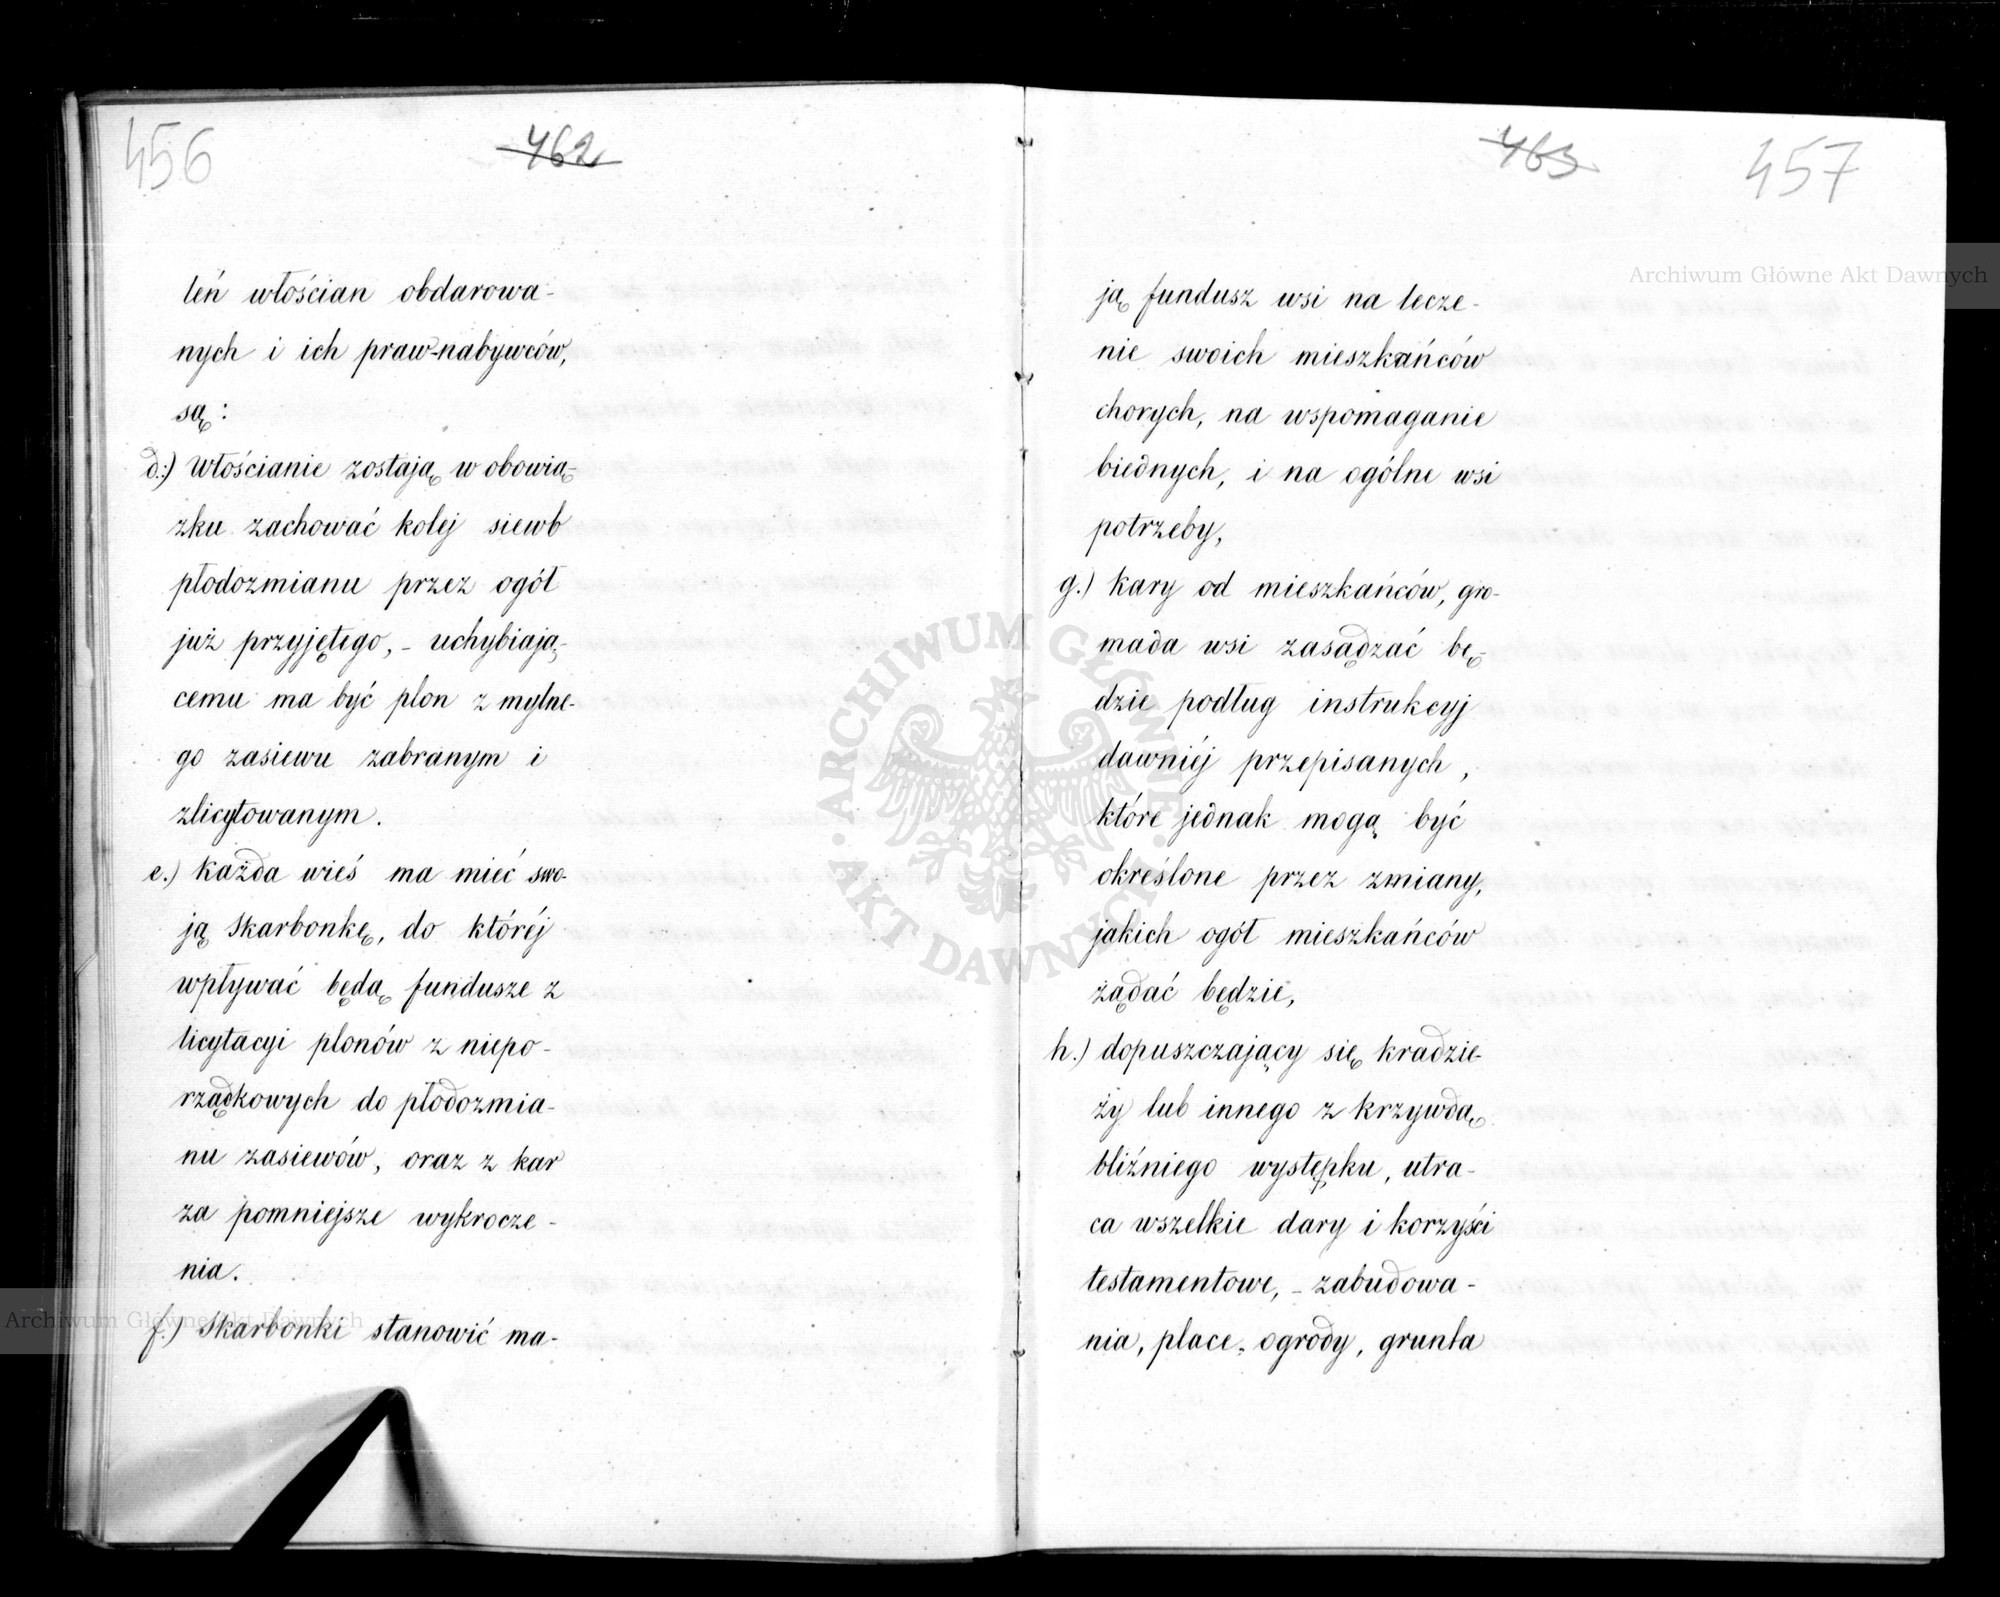 456
462
leń włościan obdarowa-
nych i ich praw-nabywców,
są:
d.) Włościanie zostają w obowią-
zku zachować kolej siewb
płodozmianu przez ogół
już przyjętego, - uchybiają-
cemu ma być plon z mylne-
go zasiewu zabranym i
zlicytowanym.
e.) Każda wieś ma mieć swo-
ją skarbonkę, do któréj
wpływać będą fundusze z
licytacyi plonów z niepo-
rządkowych do płodozmia-
nu zasiewów, oraz z kar
za pomniejsze wykrocze-
nia.
f.) Skarbonki stanowić ma-
463
457
ją fundusz wsi na lecze-
nie swoich mieszkańców
chorych, na wspomaganie
biednych, i na ogólne wsi
potrzeby,
g.) Kary od mieszkańców, gro-
mada wsi zasądzać bę-
dzie podług instrukcyj
dawniéj przepisanych,
które jednak mogą być
określone przez zmiany,
jakich ogół mieszkańców
żądać będzie,
h.) dopuszczający się kradzie-
ży lub innego z krzywdą
bliźniego występku, utra-
ca wszelkie dary i korzyści
testamentowe, - zabudowa-
nia, place, ogrody, grunta
Archiwum Główne Akt Dawnych
ARCHIWUM GŁÓWNE AKT DAWNYCH
Archiwum Główne Akt Dawnych